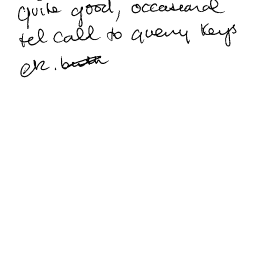 quite good, occasional
tel call to query keys
etc.